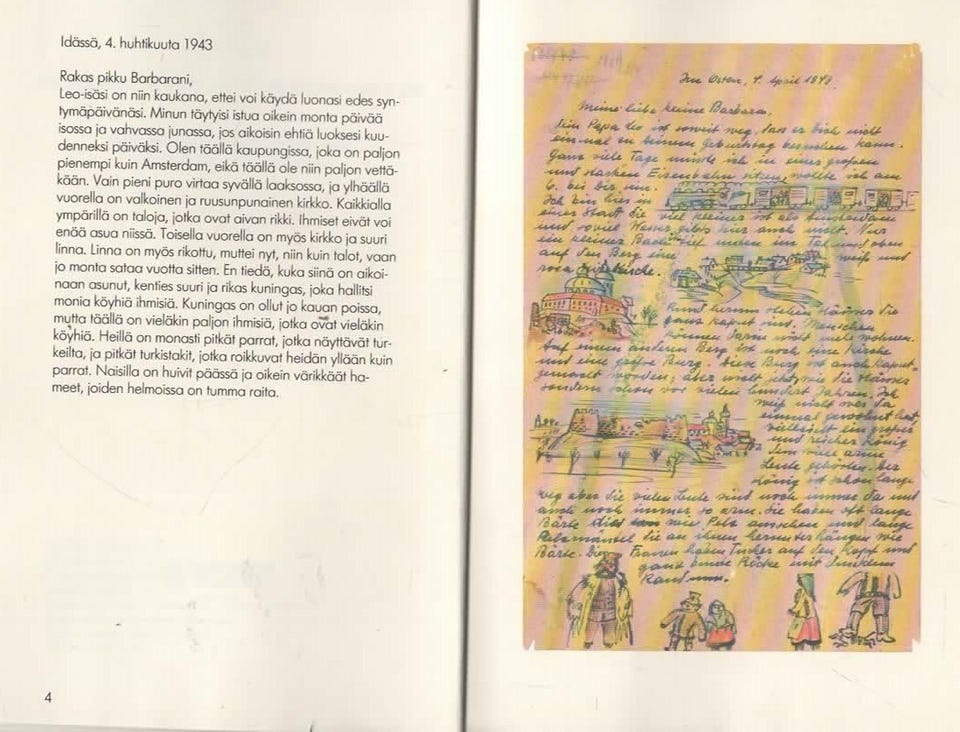 Idässä, 4. huhtikuuta 1943
Rakas pikku Barbarani,
Leo-isäsi on niin kaukana, ettei voi käydä luonasi edes syn-
tymäpäivänäsi. Minun täytyisi istua oikein monta päivää
isossa ja vahvassa junassa, jos aikoisin ehtiä luoksesi kuu-
denneksi päiväksi. Olen täällä kaupungissa, joka on paljon
pienempi kuin Amsterdam, eikä täällä ole niin paljon vettä-
kään. Vain pieni puro virtaa syvällä laaksossa, ja ylhäällä
vuorella on valkoinen ja ruusunpunainen kirkko. Kaikkialla
ympärillä on taloja, jotka ovat aivan rikki. Ihmiset eivät voi
enää asua niissä. Toisella vuorella on myös kirkko ja suuri
linna. Linna on myös rikottu, muttei nyt, niin kuin talot, vaan
jo monta sataa vuotta sitten. En tiedä, kuka siinä on aikoi-
naan asunut, kenties suuri ja rikas kuningas, joka hallitsi
monia köyhiä ihmisiä. Kuningas on ollut jo kauan poissa,
mutta täällä on vieläkin paljon ihmisiä, jotka ovat vieläkin
köyhiä. Heillä on monasti pitkät parrat, jotka näyttävät tur-
keilta, ja pitkät turkistakit, jotka roikkuvat heidän yllään kuin
parrat. Naisilla on huivit päässä ja oikein värikkäät ha-
meet, joiden helmoissa on tumma raita.
4
Im Osten, 4. April 1943.
Meine liebe kleine Barbara.
Dein Papa Leo ist soweit weg, das er Dich nicht
einmal zu deinem Geburtstag besuchen kann.
Ganz viele Tage müsste ich in einer großen
und starken Eisenbahn sitzen, wollte ich am
6. bei Dir sein.
Ich bin hier in
einer Stadt die viel kleiner ist als Amsterdam
und soviel Wasser gibts hier auch nicht. Nur
ein kleiner Bach tief unten im Tal und oben
auf den Berg eine weiß und
rosa kirche.
Rund herum stehen Häuser die
ganz kaput sind. Menschen
können darin nicht mehr wohnen.
Auf einem anderen Berg ist noch eine Kirche
und eine große Burg. Diese Burg ist auch kaput-
gemacht worden, aber nicht jetzt, wie die Häuser
sondern schon vor vielen hundert Jahren. Ich
weiß nicht wer da
einmal gewohnt hat,
vielleicht ein großer
und reicher König
dem viele arme
Leute gehörten. Der
König ist schon lange
weg aber die vielen Leute sind noch immer da und
auch noch immer so arm. Sie haben oft lange
Bärte die wie Pelz aussehen und lange
Pelzmäntel die an ihnen herunter hängen wie
Bärte. Die Frauen haben Tücher auf den Kopf und
ganz bunte Röcke mit dunklem
Rand